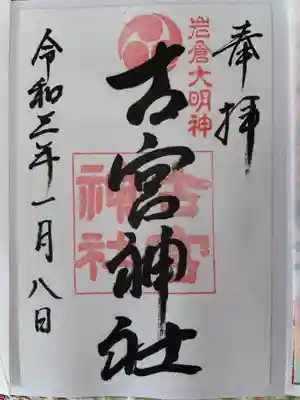 奉拝
岩倉大明神
古宮神社
古宮
神社
令和三年一月八日